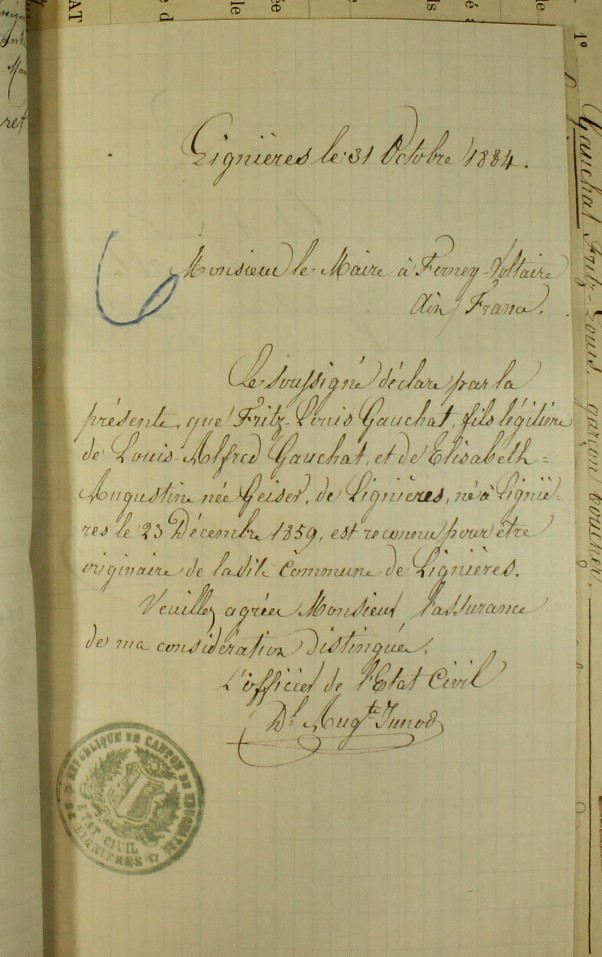 Lignières le 31 Octobre 1884.
Monsieur le Maire à Ferney-Voltaire
Ain / France.
Le soussigné déclare par la
présente, que Fritz-Louis Gauchat, fils légitime
de Louis-Alfred Gauchat, et de Elisabeth-
Augustine née Geiser, de Lignières, né à Ligniè-
res le 23 Décembre 1859, est reconnu pour être
originaire de la dite Commune de Lignières.
Veuillez agréer Monsieur l'assurance
de ma considération distinguée.
L'officier de l'Etat Civil
Dl. Augte Junod
REPUBLIQUE ET CANTON DE NEUCHATEL
ETAT CIVIL
DE LIGNIERES
1º
Gauchat Fritz-Louis, garçon boucher.